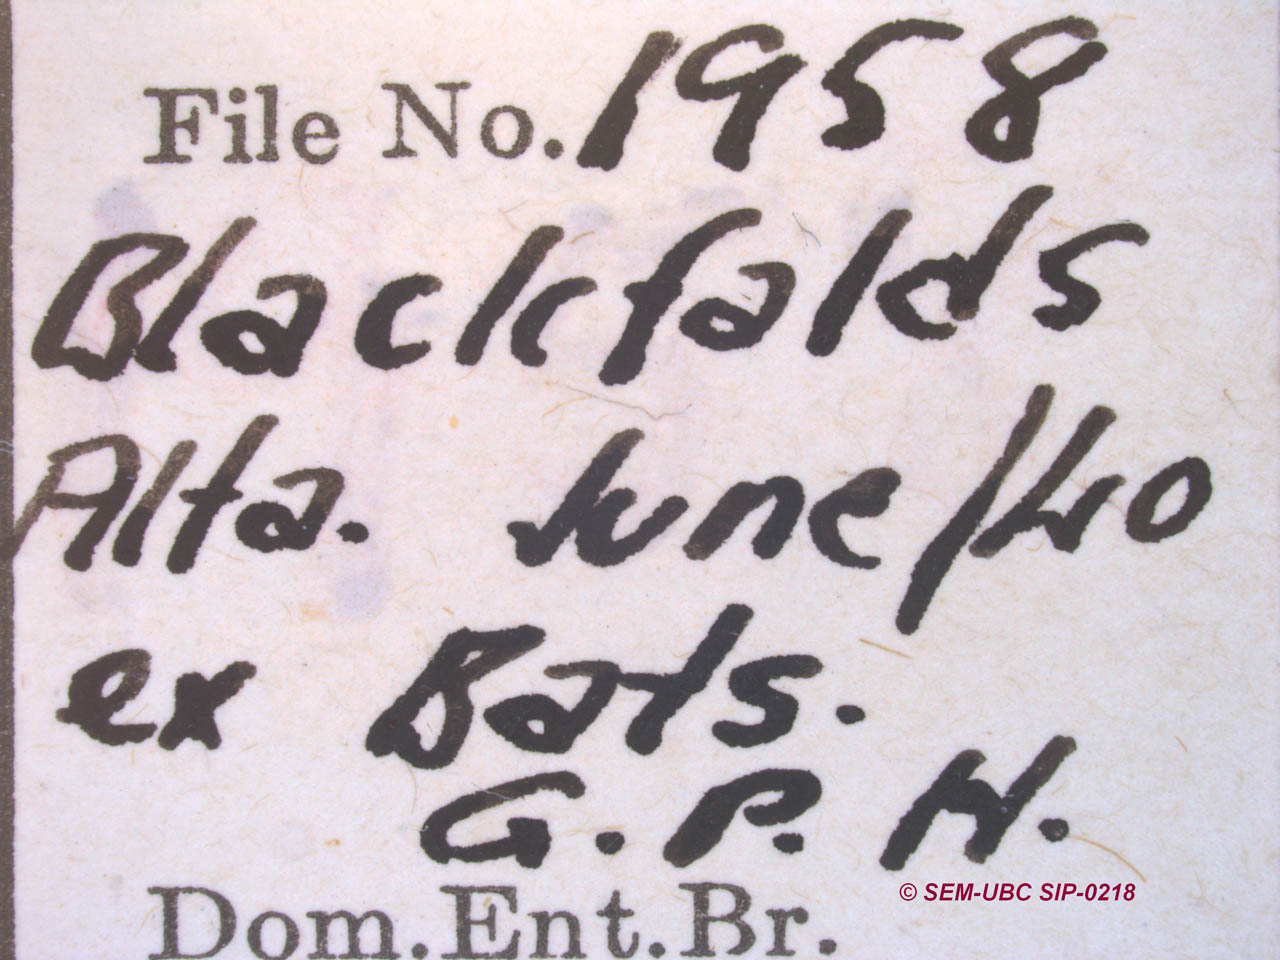 File No. 1958
Blackfalds
Alta. June/40
ex Bats.
G. P. H.
© SEM-UBC SIP-0218
Dom. Ent. Br.